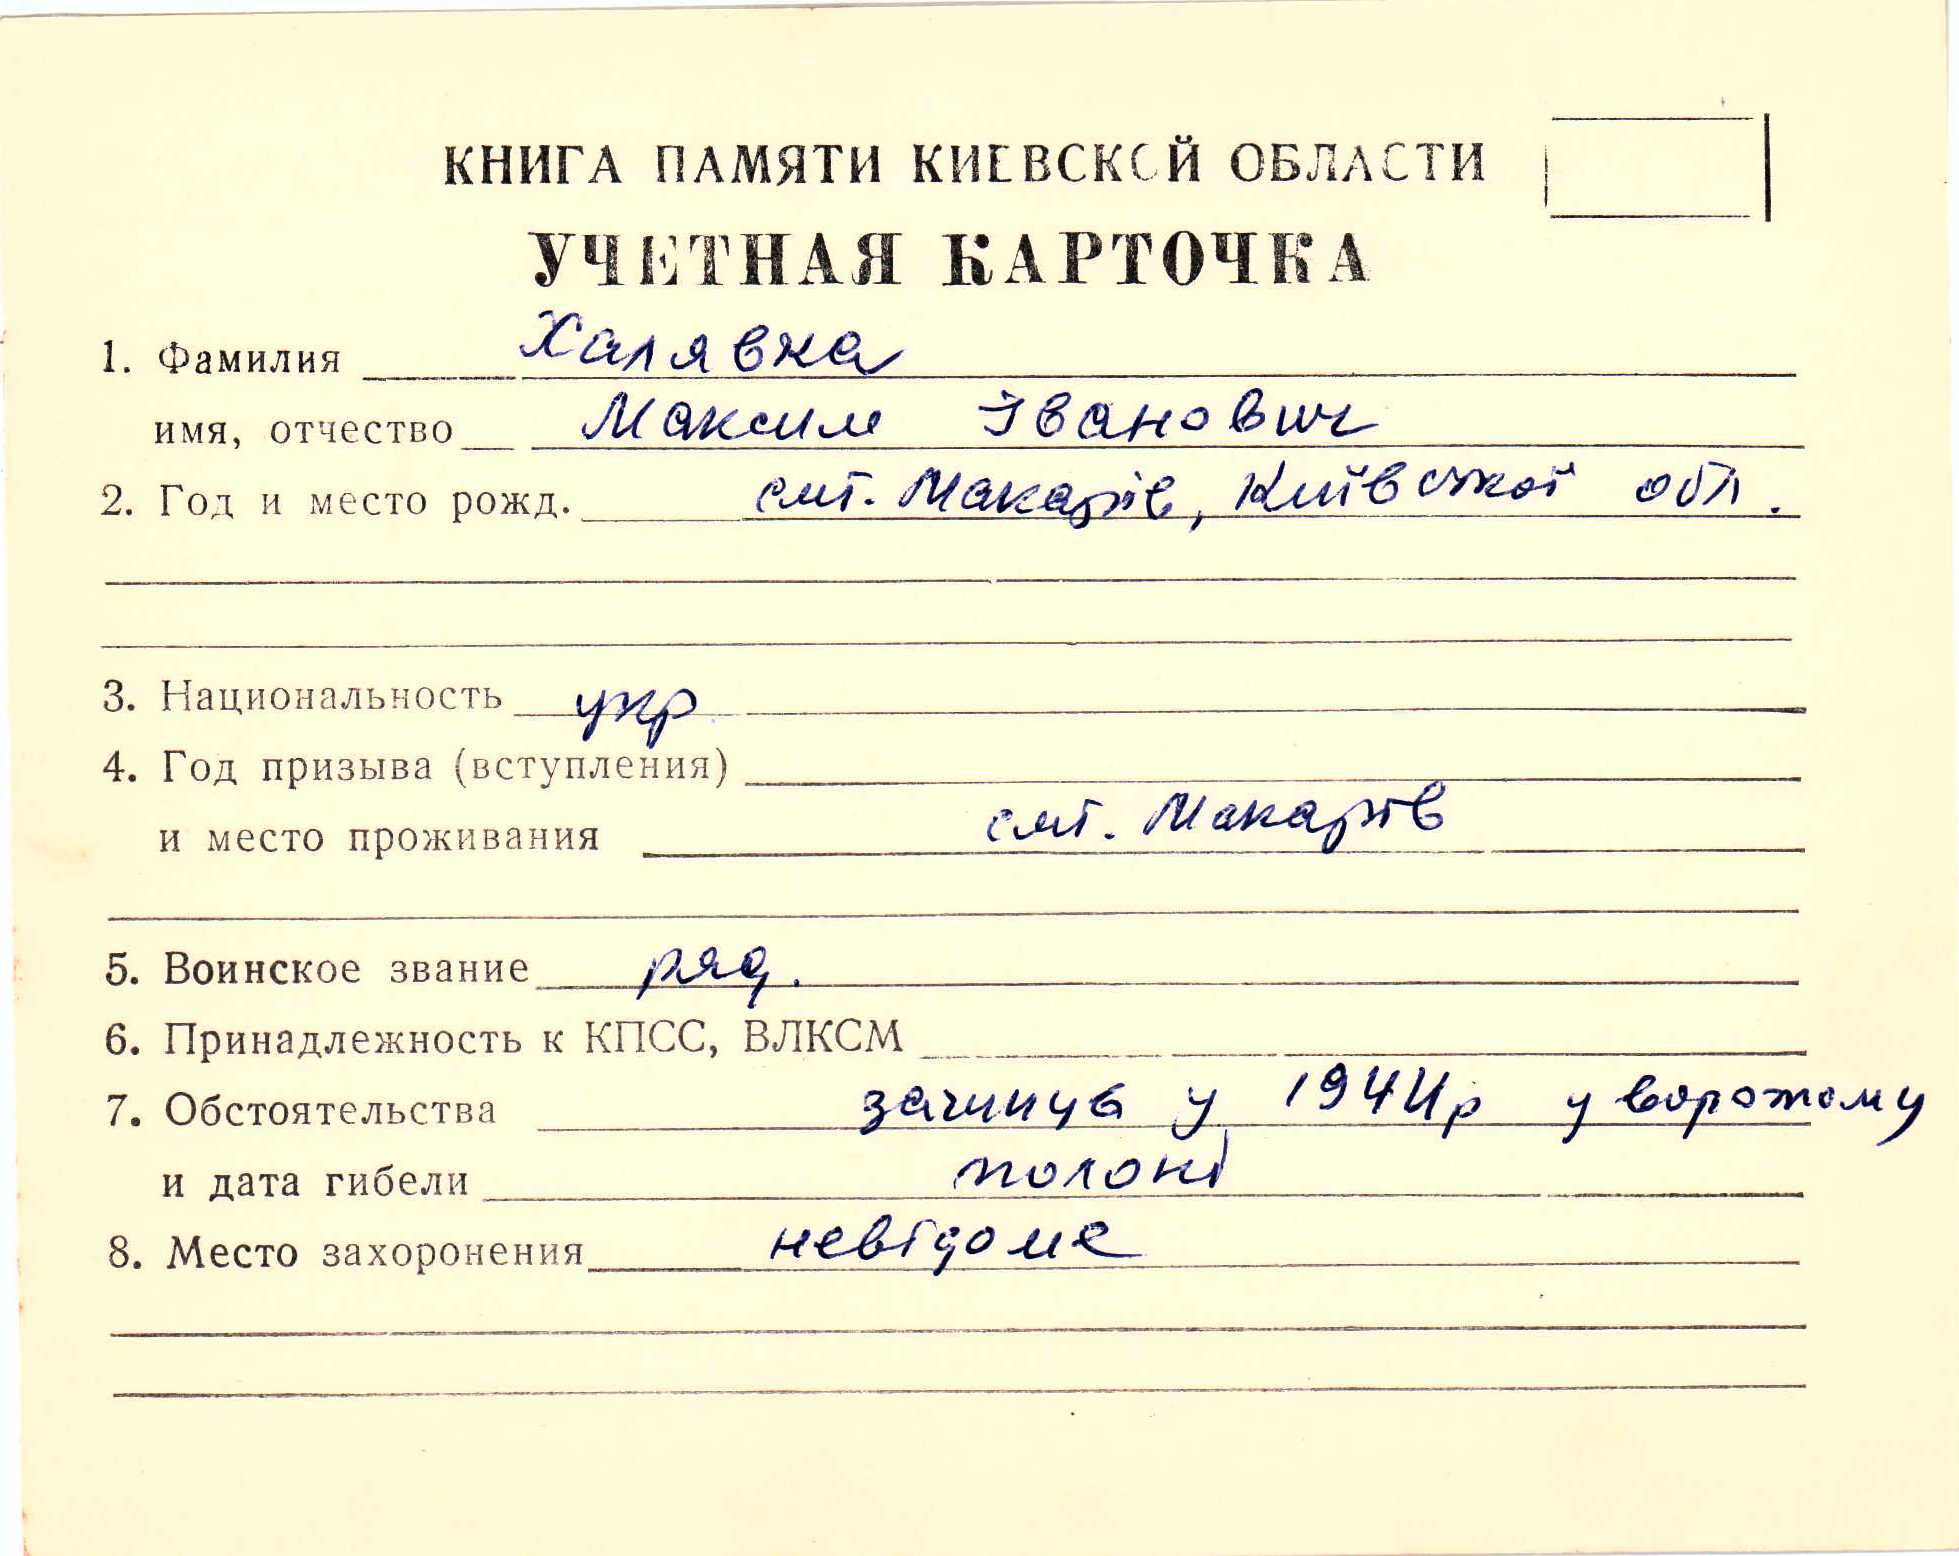 КНИГА ПАМЯТИ КИЕВСКОЙ ОБЛАСТИ
УЧЕТНАЯ КАРТОЧКА
1. Фамилия Халявка
имя, отчество Максим Іванович
2. Год и место рожд. смт. Макарів, Київської обл.
3. Национальность укр
4. Год призыва (вступления)
и место проживания смт. Макарів
5. Воинское звание ряд.
6. Принадлежность к КПСС, ВЛКСМ
7. Обстоятельства загинув у 1944р у ворожому
и дата гибели полоні
8. Место захоронения невідоме